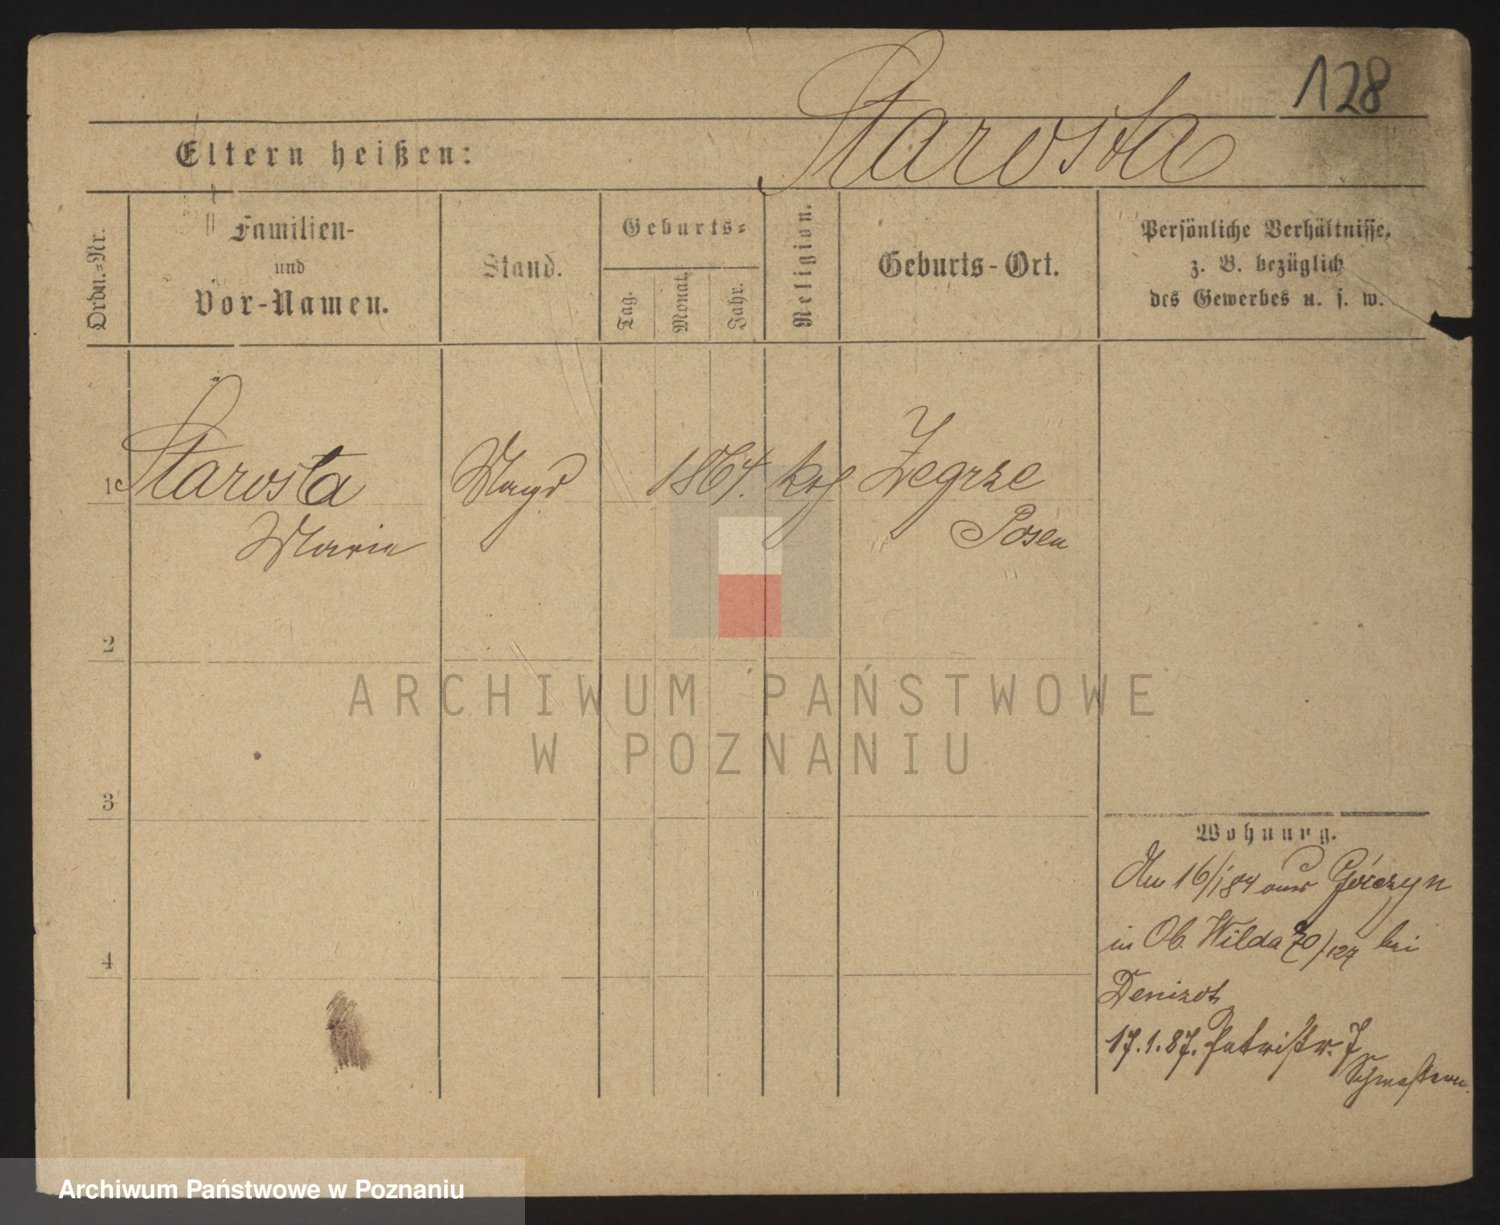 128
Starosta
Eltern heißen:
Ordn.-Nr.
Familien-
und
Vor-Namen.
Stand.
Geburts-
Tag.
Monat.
Jahr.
Religion.
Geburts-Ort.
Persönliche Verhältnisse,
z. B. bezüglich
des Gewerbes u. s. w.
1 Starosta Magd 1864. kth Zegrze
Marie Posen
2
3
4
Wohnung.
Am 16/1 84 aus Górczyn
in Ob. Wilda 20/127 bei
Denizot
17.1.87. Patristr. 7
ARCHIWUM PAŃSTWOWE
W POZNANIU
Archiwum Państwowe w Poznaniu